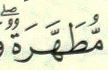 مُّطَهَّرَةٌ ۖ